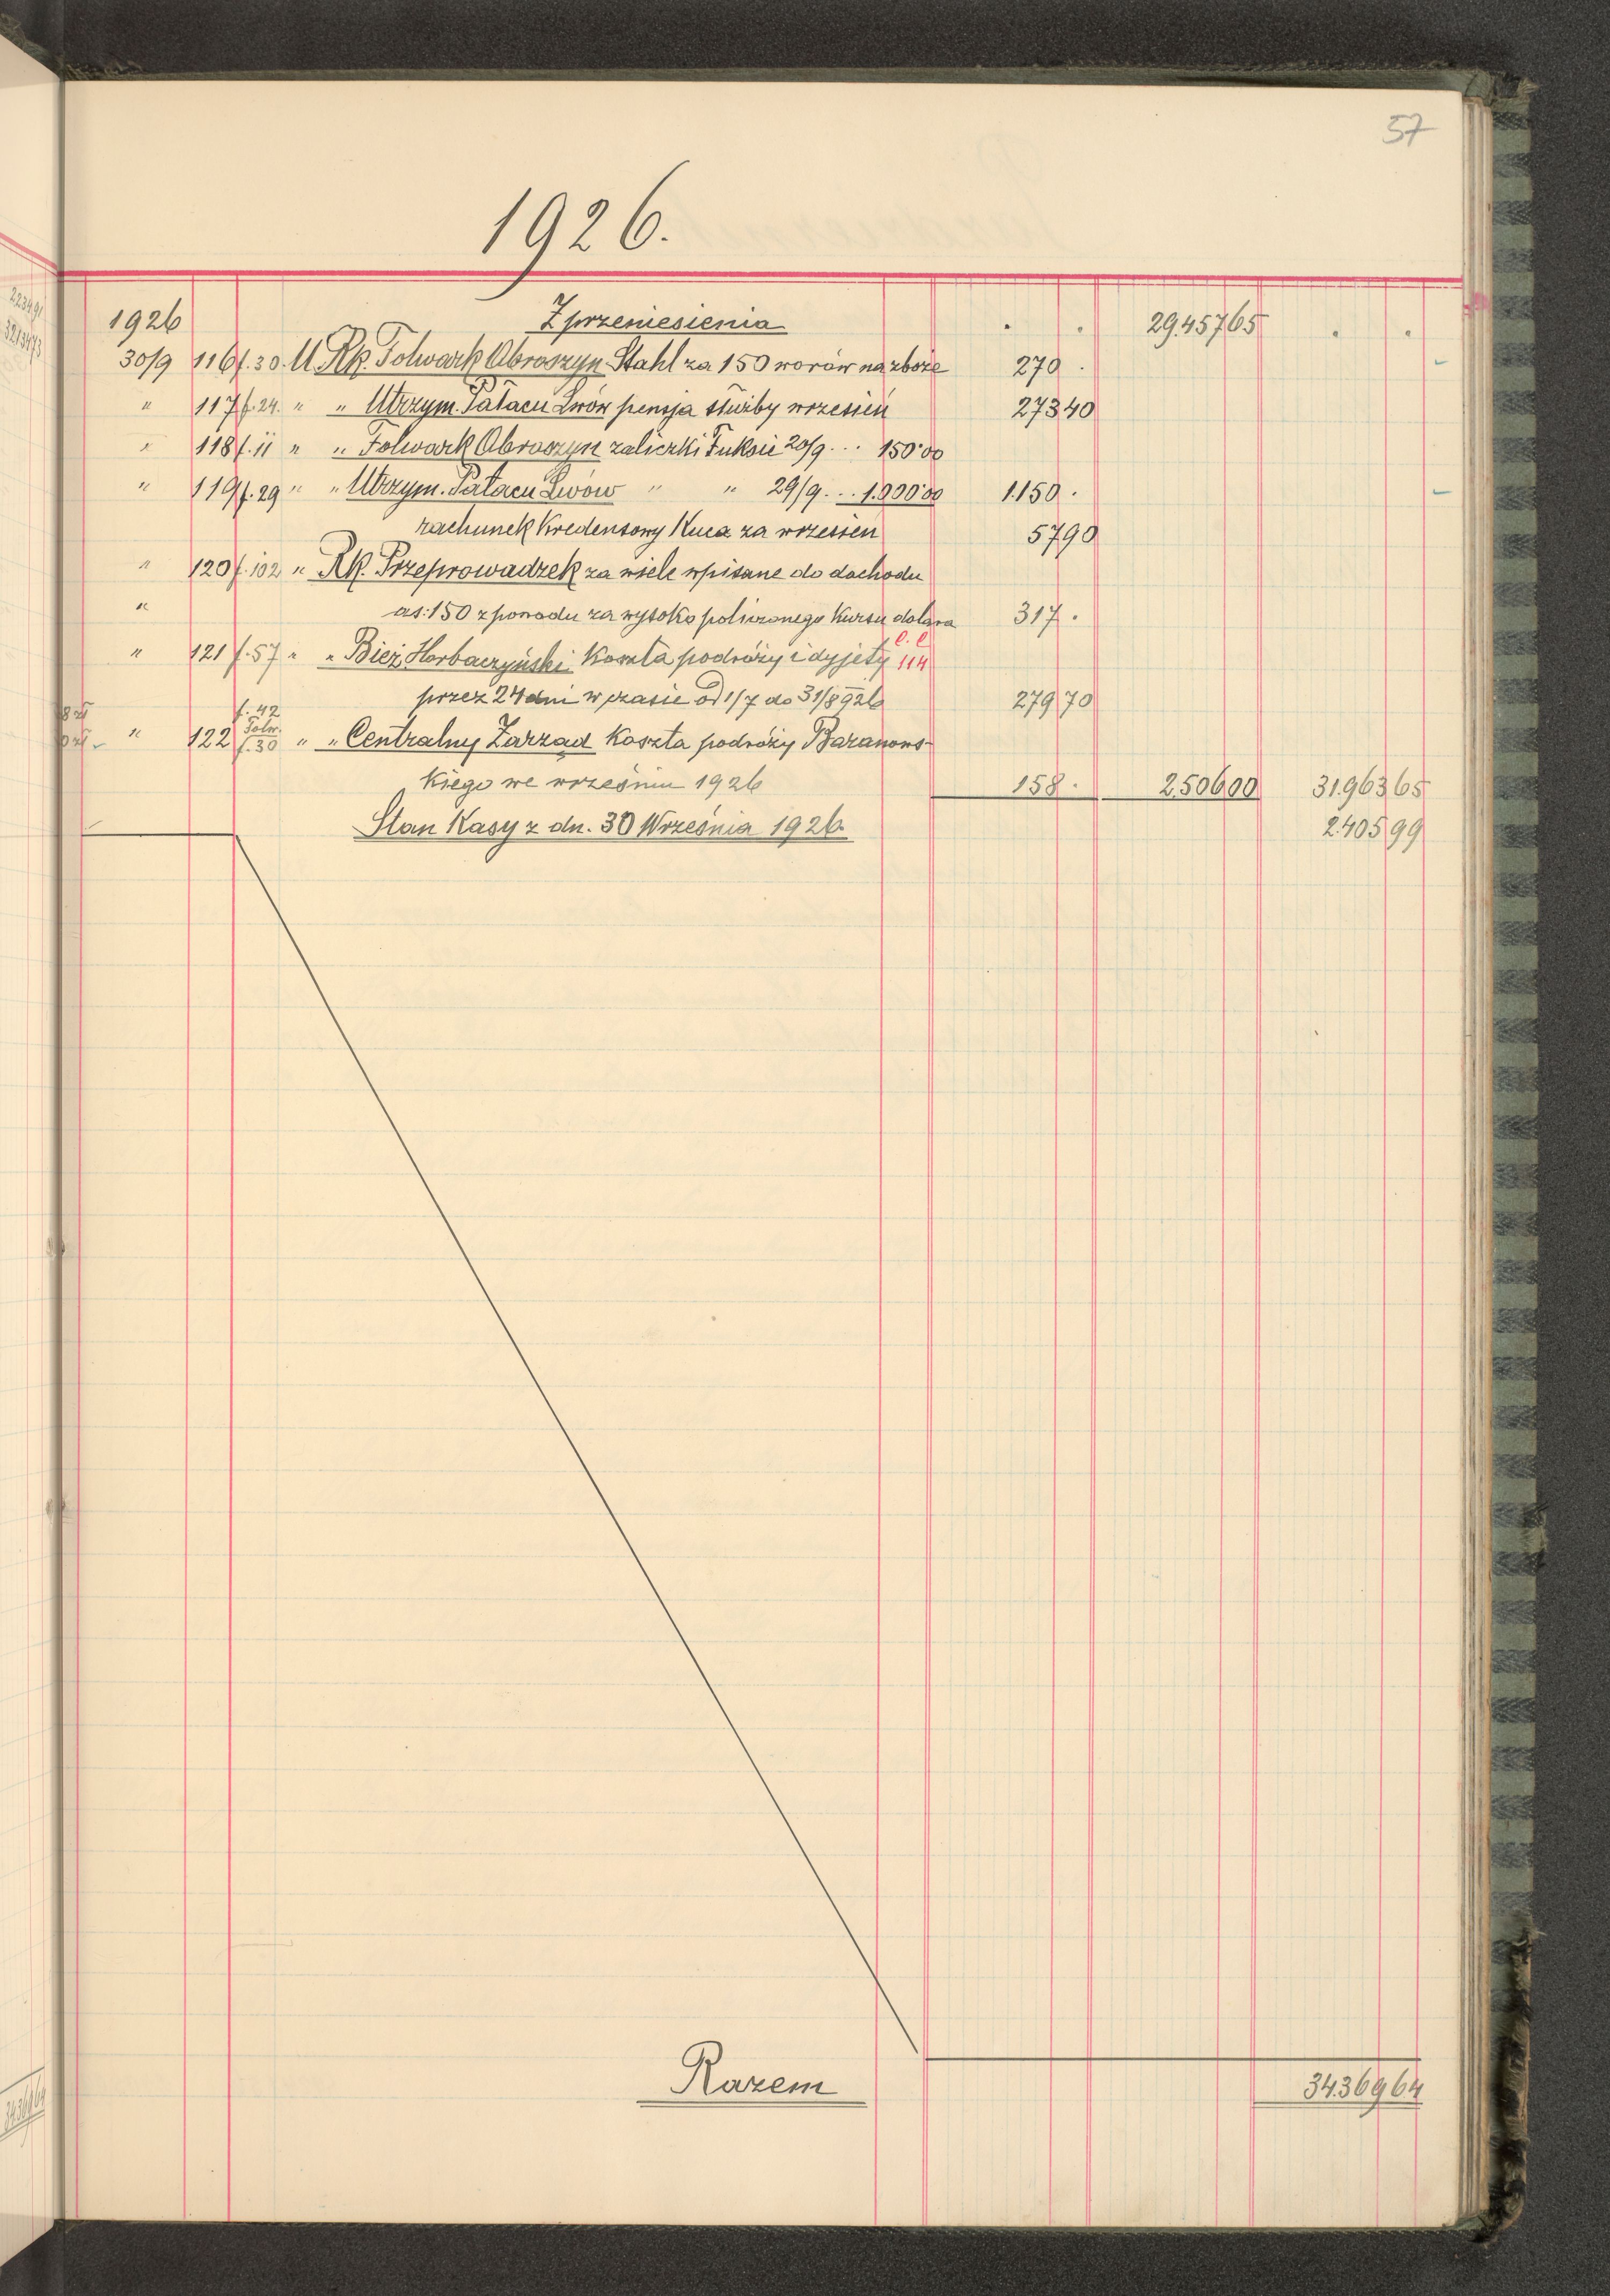 57
1926.
1926 Z przeniesienia . . 29.457 65 . .
30/9 116 f. 30. U Rk. Folwark Obroszyn Stahl za 150 worów na zboże 270 .
" 117 f. 24. " " Utrzym. Pałacu Lwów pensja służby wrzesień 273 40
" 118 f. 11 " " Folwark Obroszyn zaliczki Fuksie 20/9 ... 150.00
" 119 f. 29 " " Utrzym. Pałacu Lwów " " 29/9 ... 1.000.00 1.150 .
rachunek Kredensowy Kuca za wrzesień 57 90
" 120 f. 102 " Rk. Przeprowadzek za wiele wpisane do dochodu
" as: 150 z powodu za wysoko policzonego Kursu dolara 317 .
" 121 f. 57 " " Bież. Horbaczyński Koszta podróży i dyjety C. C. 114
przez 24 dni w czasie od 1/7 do 31/8 926 279 70
f. 42
" 122 Folw. f. 30 " " Centralny Zarząd Koszta podróży Baranows-
kiego we wrześniu 1926 158 . 2.506 00 31.963 65
Stan Kasy z dn. 30 Września 1926 2.405 99
Razem 34.369 64